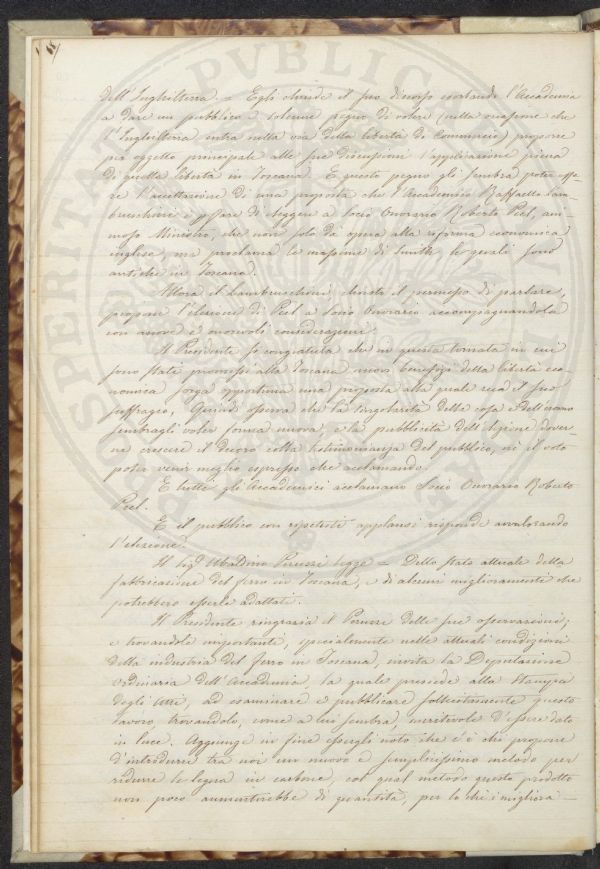 dell'Inghilterra. = Egli chiude il suo discorso esortando l'Accademia
a dare un pubblico e solenne pegno di volere (nella occasione che
l'Inghilterra entra nella via della libertà di Commercio) proporre
per oggetto principale alle sue discussioni l'applicazione piena
di quella libertà in Toscana. E questo pegno gli sembra poter esse=
re l'accettazione di una proposta che l'Accademico Raffaello Lam=
bruschini è per fare di eleggere a Socio Onorario Roberto Peel, ani=
moso Ministro, che non solo dà opera alla riforma economica
inglese, ma proclama le massime di Smith, le quali sono
antiche in Toscana.
Allora il Lambruschini, chiesto il permesso di parlare,
propone l'elezione di Peel a Socio Onorario accompagnandola
con nuove ed autorevoli considerazioni.
Il Presidente si congratula che in questa tornata in cui
sono state promesse alla Toscana nuovi benefizi della libertà eco=
nomica sorga opportuna una proposta alla quale reca il suo
suffragio, Quindi osserva che la singolarità della cosa e dell'uomo
sembragli voler forma nuova, e la pubblicità dell'Azione dover=
ne crescere il decoro colla testimonianza del pubblico, nè il voto
poter venir meglio espresso che acclamando.
E tutti gli Accademici acclamano Socio Onorario Roberto
Peel.
E il pubblico con ripetuti applausi risponde avvalorando
l'elezione.
Il Sig.r Ubaldino Peruzzi legge = Dello stato attuale della
fabbricazione del ferro in Toscana, e di alcuni miglioramenti che
potrebbero esserle adattati.
Il Presidente ringrazia il Peruzzi delle sue osservazioni;
e trovandole importanti, specialmente nelle attuali condizioni
della industria del ferro in Toscana, invita la Deputazione
ordinaria dell'Accademia la quale presiede alla Stampa
degli Atti, ad esaminare e pubblicare sollecitamente questo
lavoro, trovandolo, come a lui sembra, meritevole d'essere dato
in luce. Aggiunge in fine essergli noto che v'è chi propone
d'introdurre tra noi un nuovo e semplicissimo metodo per
ridurre le legna in carbone, col qual metodo questo prodotto
non poco aumenterebbe di quantità, per lo che i migliora=
PROSPERITATI PUBLICAE